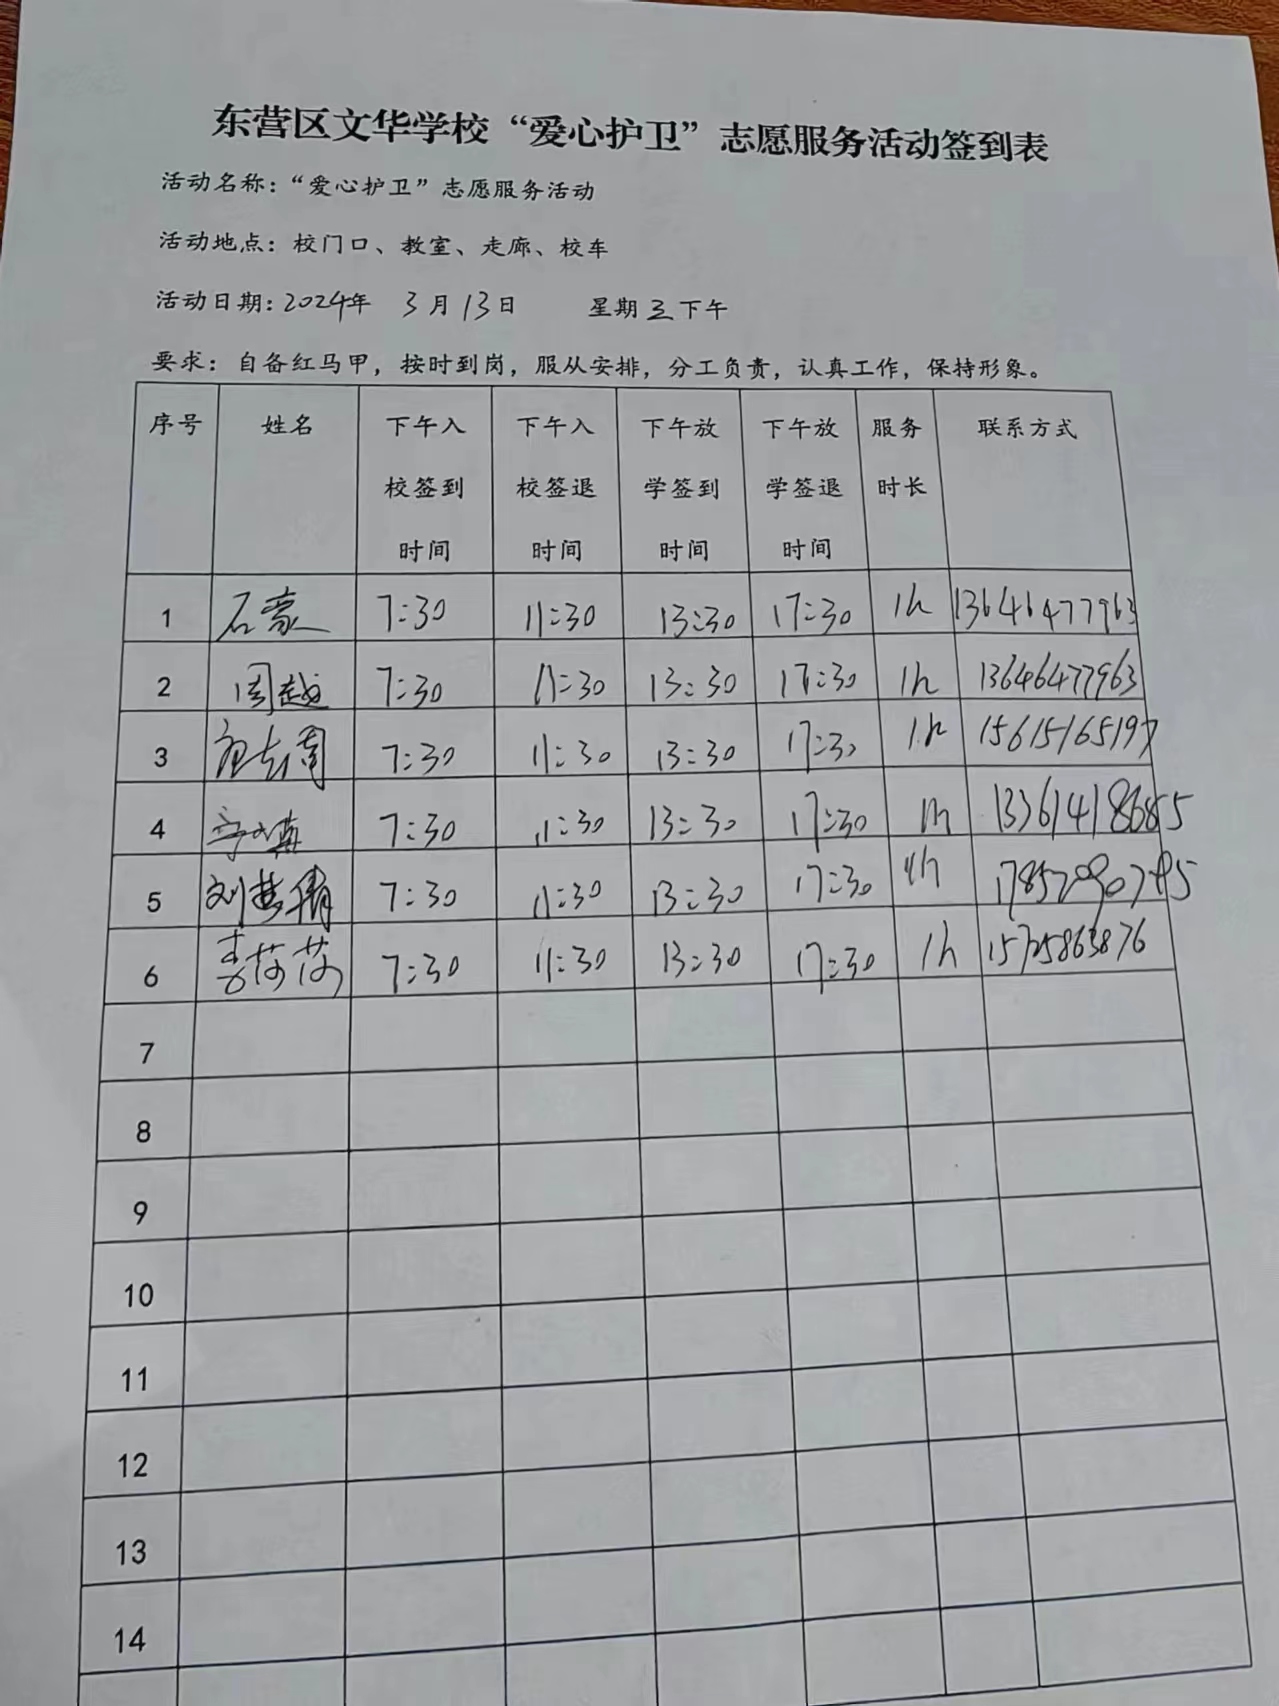 东营区文华学校“爱心护卫”志愿服务活动签到表
活动名称：“爱心护卫”志愿服务活动
活动地点：校门口、教室、走廊、校车
活动日期：2024年 3月13日 星期三下午
要求：自备红马甲，按时到岗，服从安排，分工负责，认真工作，保持形象。
序号 姓名 下午入校签到时间 下午入校签退时间 下午放学签到时间 下午放学签退时间 服务时长 联系方式
1 石豪 7:30 11:30 13:30 17:30 1h 13646477963
2 周越 7:30 11:30 13:30 17:30 1h 13646477963
3 7:30 11:30 13:30 17:30 1h 15615165197
4 7:30 11:30 13:30 17:30 1h
5 刘梦倩 7:30 11:30 13:30 17:30 1h
6 李莎莎 7:30 11:30 13:30 17:30 1h 15725863876
7
8
9
10
11
12
13
14